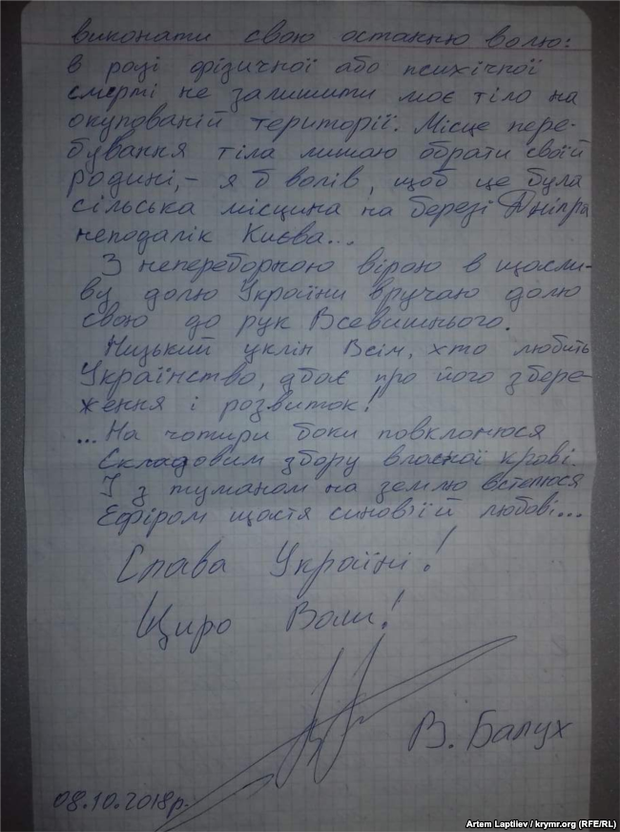 виконати свою останню волю:
в разі фізичної або психічної
смерті не залишити моє тіло на
окупованій території. Місце пере-
бування тіла лишаю обрати своїй
родині,- я б волів, щоб це була
сільська місцина на березі Дніпра
неподалік Києва...
З непереборною вірою в щасли-
ву долю України вручаю долю
свою до рук Всевишнього.
Низький уклін Всім, хто любить
Українство, дбає про його збере-
ження і розвиток!
...На чотири боки повклонюся
Складовим збору власної крові.
І з туманом на землю встелюся
Ефіром щастя синов'їй любові...
Слава Україні!
Щиро Вам!
В. Балух
08.10.2018р.
Artem Laptiiev / krymr.org (RFE/RL)